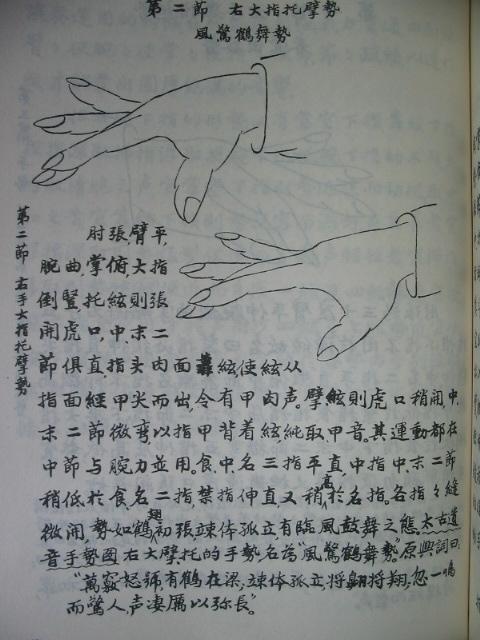 第二節 右大指托擘勢
風驚鶴舞勢
肘張臂平,
腕曲,掌俯大指
倒豎,托絃則張
開虎口,中、末二
節俱直,指头内面 絃使絃从
指面經甲尖而出,令有甲肉声。擘絃則虎口稍開,中、
末二節微弯以指甲背着絃,純取甲音。其運動都在
中節与腕力並用。食、中、名三指平直,中指中、末二節
稍低於食、名二指,禁指伸直,又稍高於名指。各指々縫
微開,勢如鶴翅初張竦体孤立,有臨風鼓舞之態。太古遺
音手勢图右大擘托的手勢名為“風驚鶴舞勢”。原興詞曰、
“萬竅怒號,有鶴在梁,竦体孤立,將翱將翔,忽一鳴
而驚人,声凄厲以弥長”。
第二節 右手大指托擘勢